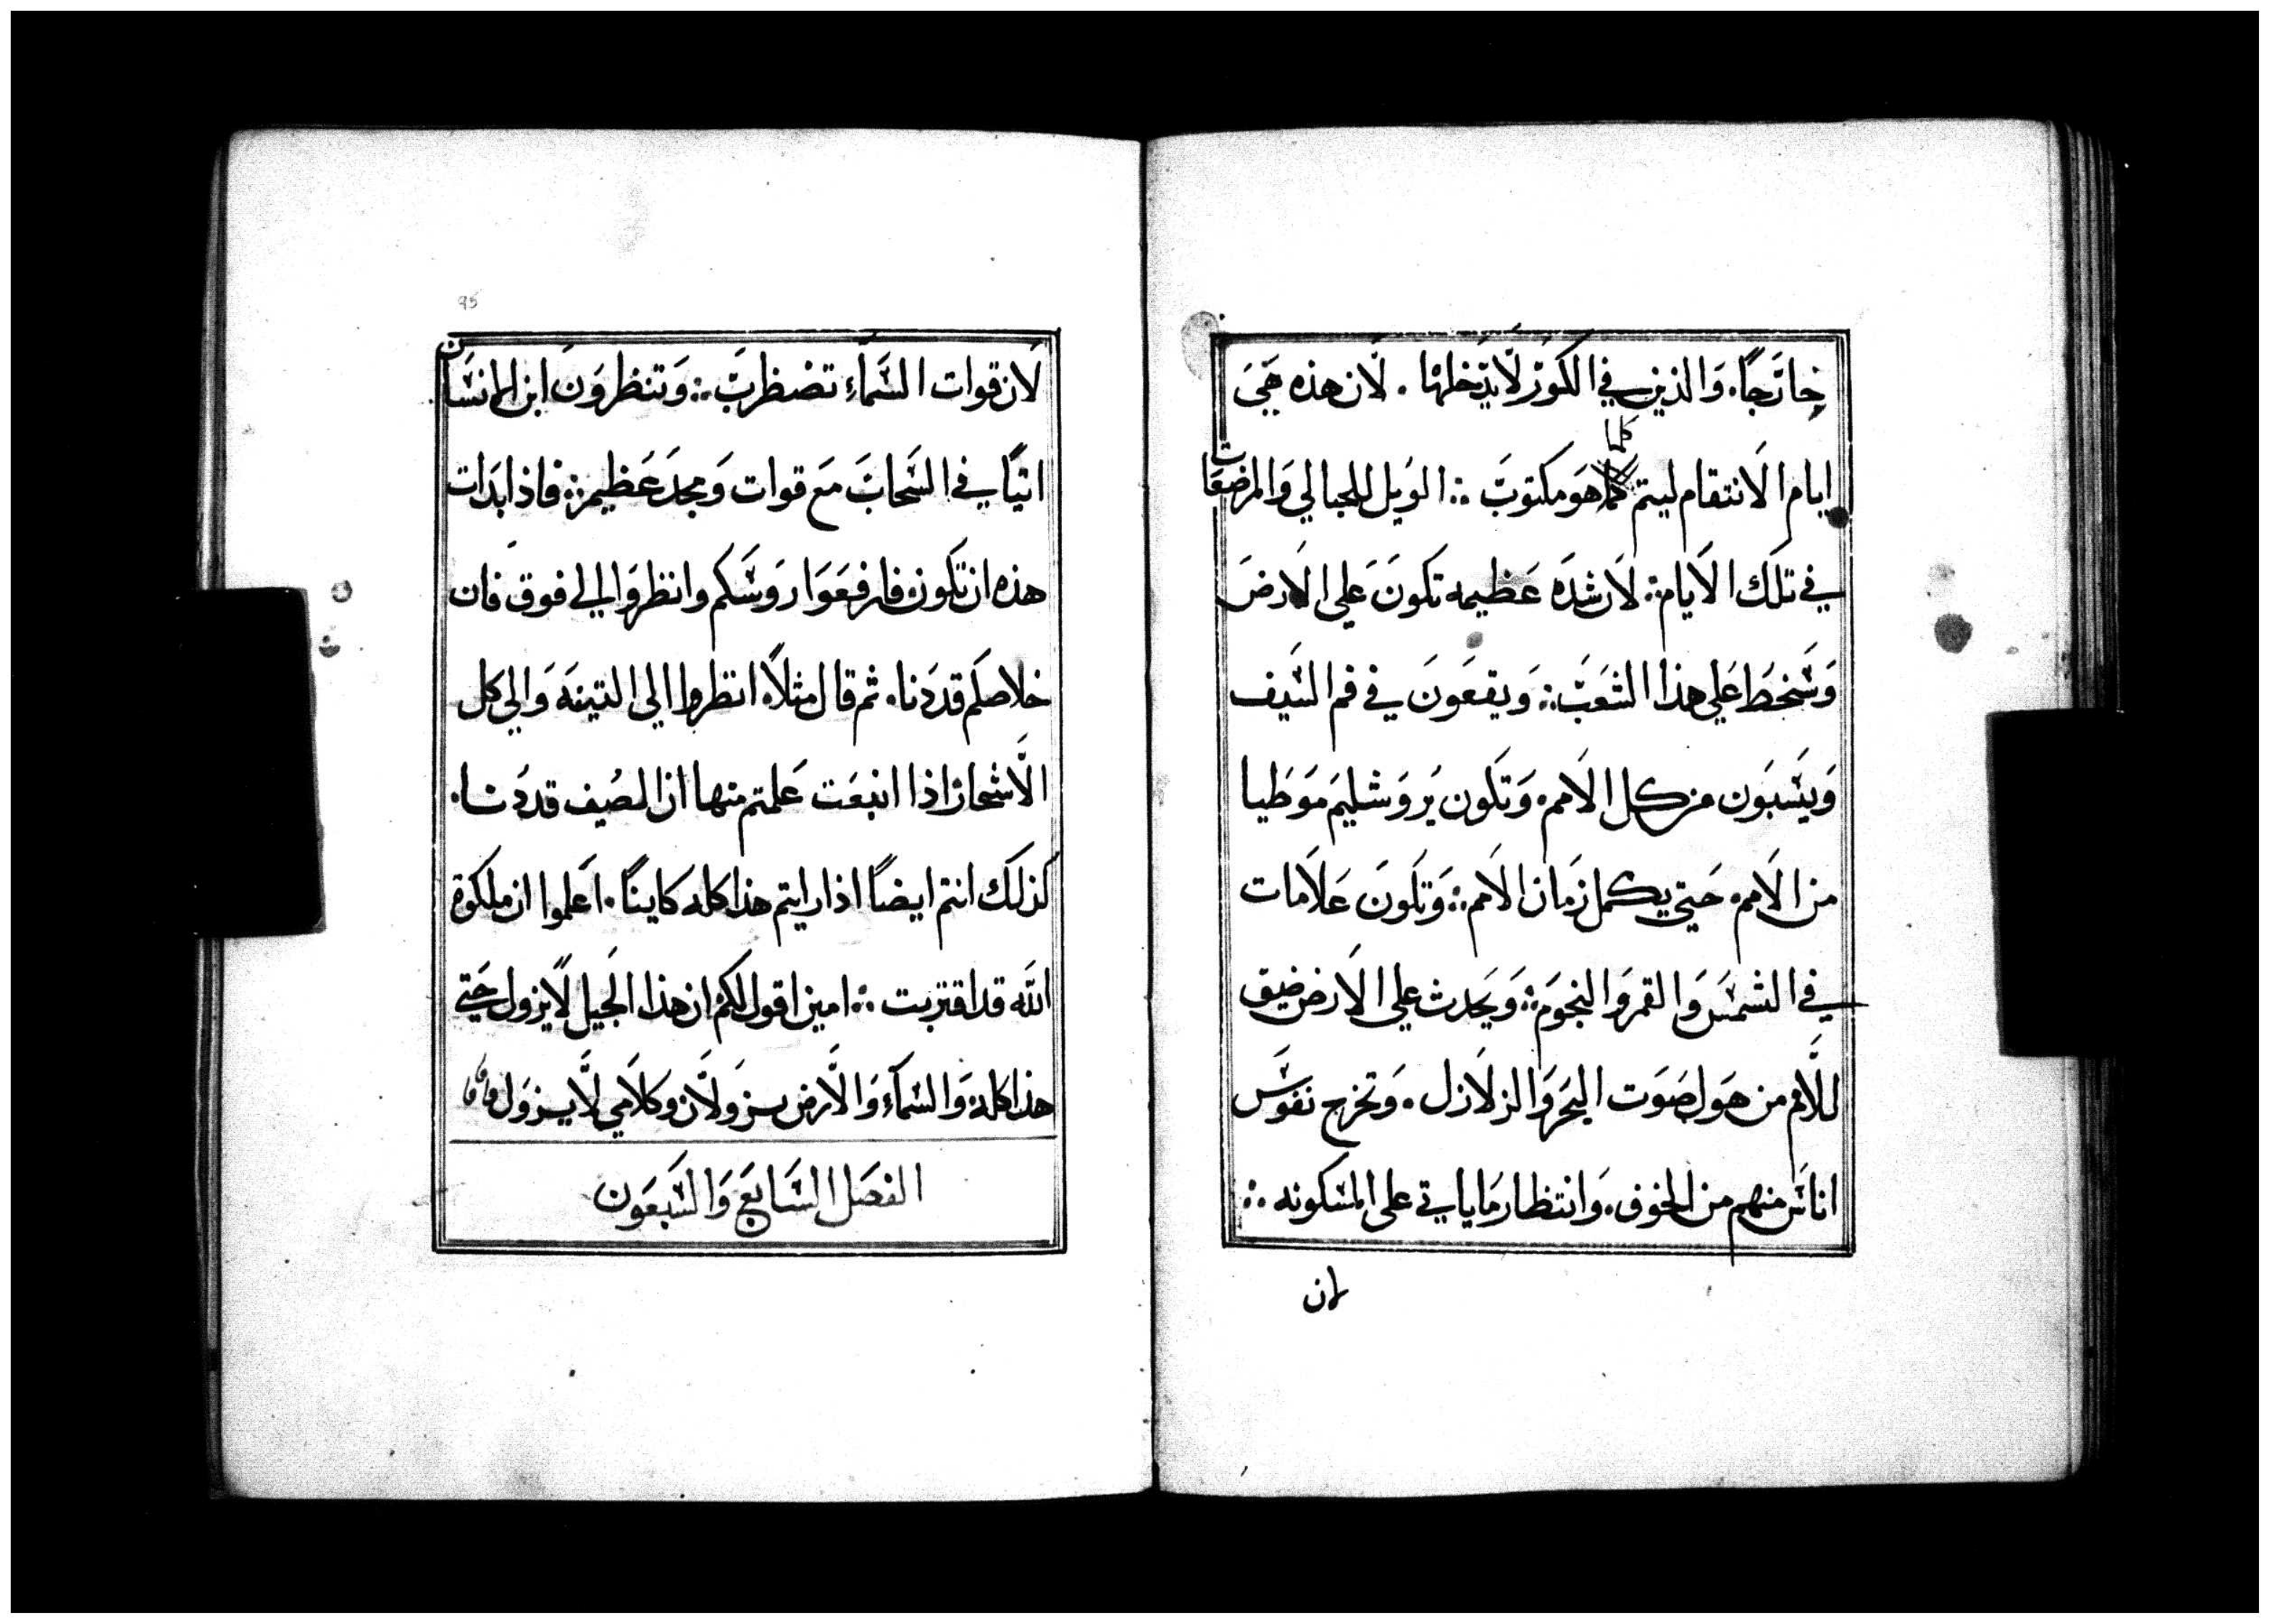 خارجًا. والذين في الكور لا يدخلها. لان هذه هي
ايام الانتقام ليتم كلما هو مكتوب ∴ الويل للحبالي والمرضعات
في تلك الايام ∴ لان شده عظيمه تكون علي الارض
وسخط علي هذا الشعب ∴ ويقعون في فم السيف
ويسبون من كل الامم. وتكون يروشليم موطيا
من الامم. حتي يكمل زمان الامم ∴ وتكون علامات
في الشمس والقمر والنجوم ∴ ويحدث علي الارض ضيق
للامم من هول صوت البحر والزلازل. وتخرج نفوس
اناس منهم من الخوف. وانتظار ما ياتي علي المسكونه ∴
لان
95
لان قوات السماء تضطرب ∴ وتنظرون ابن الانسان
اتيًا في السحاب مع قوات ومجد عظيم ∴ فاذا بدات
هذه ان تكون فارفعوا روسكم وانظروا الي فوق فان
خلاصكم قد دنا. ثم قال مثلاً. انظروا الي التينه والي كل
الاشجار اذا انبعت علمتم منها ان الصيف قد دنا.
كذلك انتم ايضًا اذا رايتم هذا كله كاينًا. اعلموا ان ملكوة
الله قد اقتربت ∴ امين اقول لكم ان هذا الجيل لا يزول حتي
هذا كله. والسماء والارض يزولان وكلامي لا يزول
الفصل السابع والسبعون